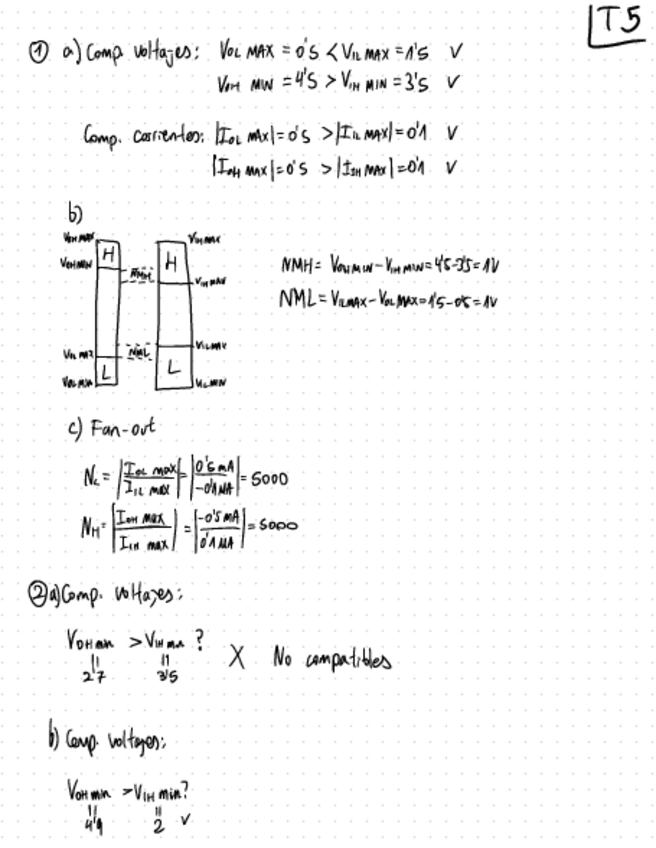 T5
① a) Comp. voltajes: VOL MAX = 0'5 < VIL MAX = 1'5 V
VOH MIN = 4'5 > VIH MIN = 3'5 V
Comp. corrientes: |IOL MAX| = 0'5 > |IIL MAX| = 0'1 V
|IOH MAX| = 0'5 > |IIH MAX| = 0'1 V
b)
VOH MAX VIH MAX
H H
VOH MIN NMH VIH MAX
NMH = VOH MIN - VIH MIN = 4'5 - 3'5 = 1V
NML = VIL MAX - VOL MAX = 1'5 - 0'5 = 1V
VOL MAX NML VIL MAX
L L
VOL MIN VIL MIN
c) Fan-out
NL = |IOL MAX / IIL MAX| = |0'5 mA / -0'1 µA| = 5000
NH = |IOH MAX / IIH MAX| = |-0'5 mA / 0'1 µA| = 5000
② a) Comp. voltajes:
VOH min > VIH min ?
2'7 3'5 X No compatibles
b) Comp. voltajes:
VOH min > VIH min?
4'9 2 V